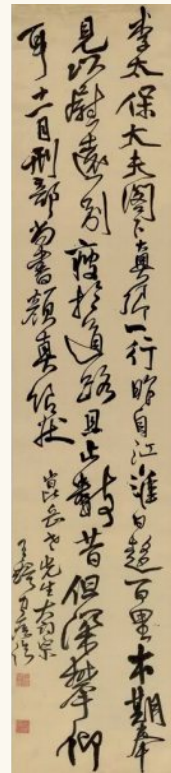 李太保大夫閣下真卿一行昨自江淮日趨百里本期奉
見以慰遠別疲於道路且止數昔但深攀仰
耳十一月刑部尚書顏真卿狀
崑岳老先生大詞宗
王鐸